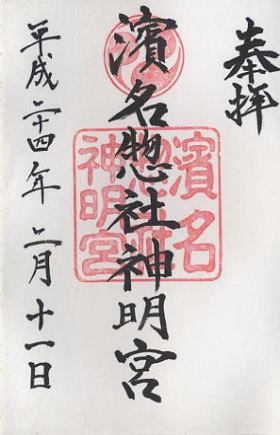 奉拝
濱名惣社神明宮
濱名
惣社
神明宮
平成二十四年二月十一日